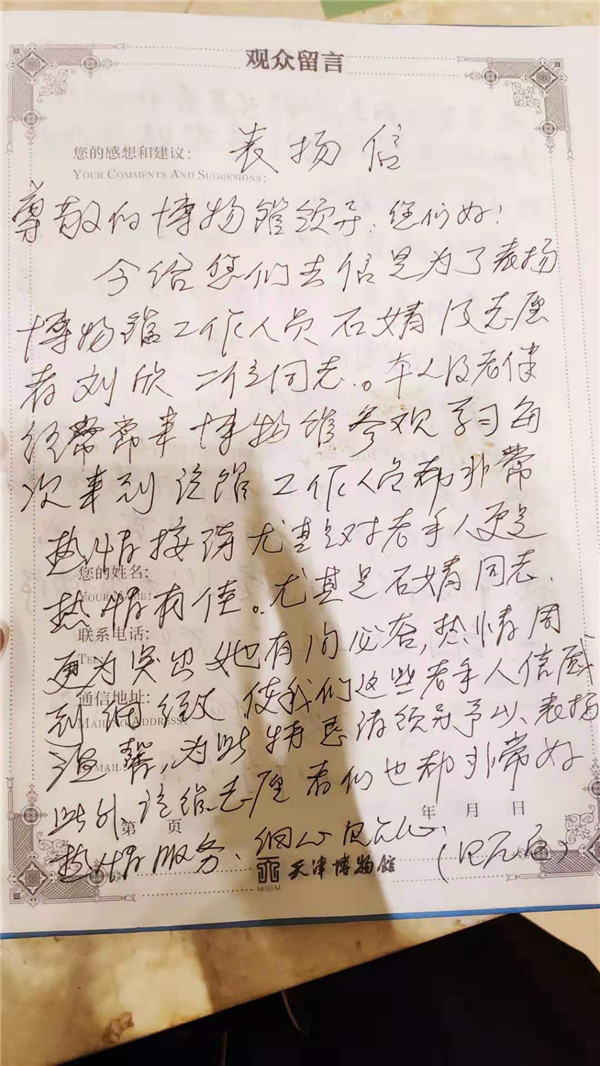 观众留言
您的感想和建议:
YOUR COMMENTS AND SUGGESIONS:
表扬信
尊敬的博物馆领导:您们好!
今给您们去信是为了表扬
博物馆工作人员石婧及志愿
者刘欣二位同志。本人及老伴
经常常来博物馆参观学习每
次来到该馆工作人员都非常
热情接待尤其是对老年人更是
您的姓名:
YOUR NAME:
热情有佳。尤其是石婧同志.
联系电话:
更为突出她有问必答,热情周
通信地址:
到细致使我们这些老年人倍感
温馨,为此特恳请领导予以表扬
此外该馆志愿者们也都非常好
年 月 日
第 页
热情服务、细心
天津博物馆